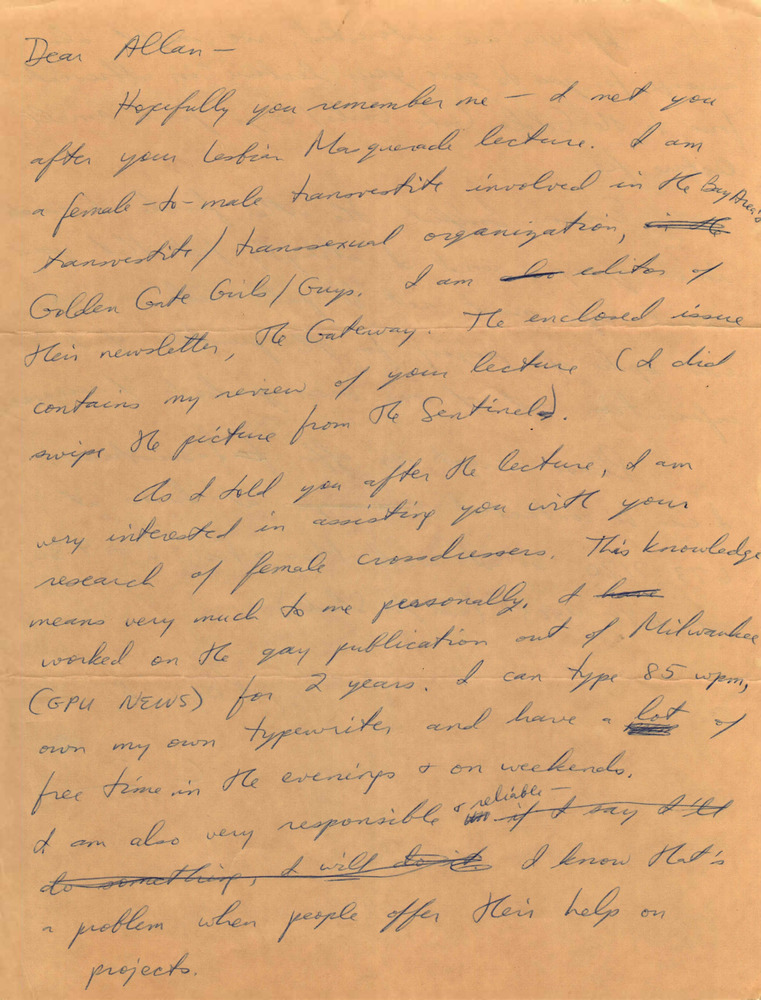 Dear Allan —
Hopefully you remember me — I met you
after your Lesbian Masquerade lecture. I am
a female-to-male transvestite involved in the Bay Area's
transvestite/transsexual organization, in the
Golden Gate Girls/Guys. I am editor of
their newsletter, the Gateway. The enclosed issue
contains my review of your lecture (I did
swipe the picture from the Sentinel).
As I told you after the lecture, I am
very interested in assisting you with your
research of female crossdressers. This knowledge
means very much to me personally. I have
worked on the gay publication out of Milwaukee
(GPU NEWS) for 2 years. I can type 85 wpm,
own my own typewriter and have a lot of
free time in the evenings + on weekends.
I am also very responsible + reliable — if I say I'll
do something, I will do it. I know that's
a problem when people offer their help on
projects.